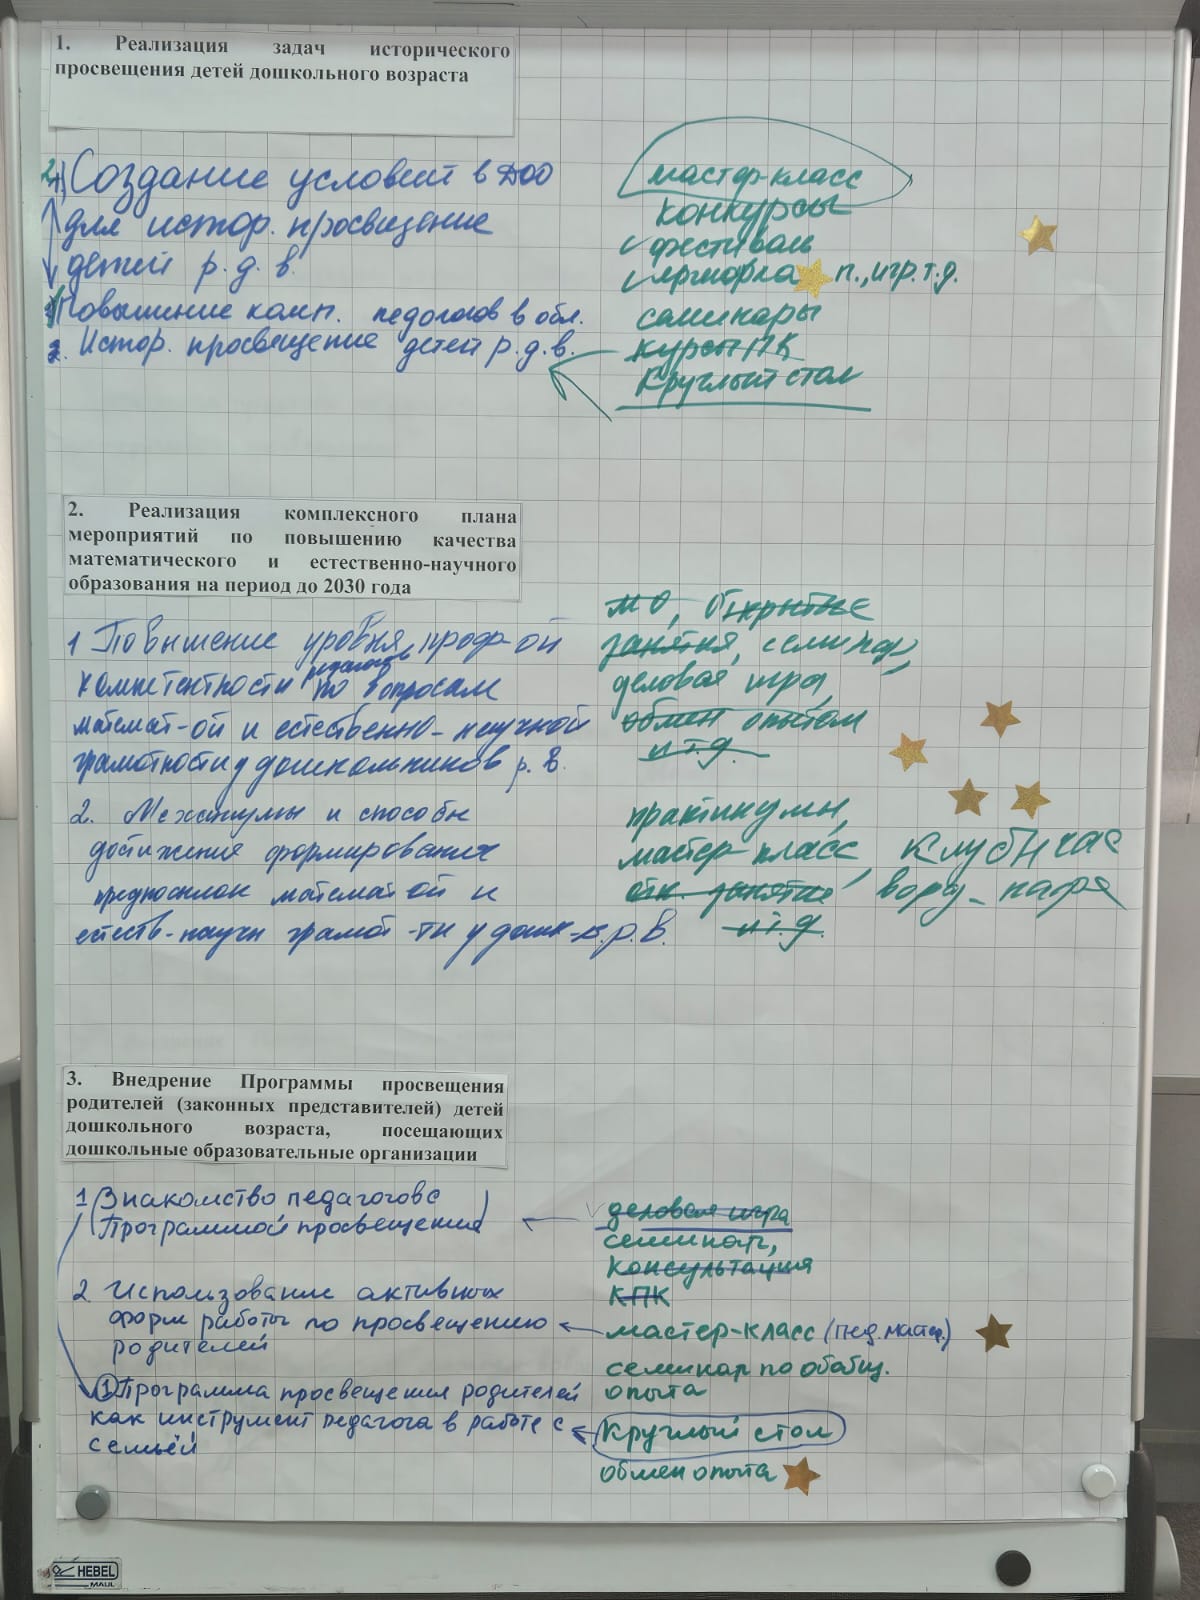 1. Реализация задач исторического
просвещения детей дошкольного возраста
Создание условий в ДОО
для истор. просвещение
детей р. д. в.
Повышение комп. педогогов в обл.
2. Истор. просвещение детей р. д. в.
мастер-класс
конкурсы
фестиваль
ярморка п., игр. т. д.
семинары
курсы ПК
Круглый стол
2. Реализация комплексного плана
мероприятий по повышению качества
математического и естественно-научного
образования на период до 2030 года
1 Повышение уровня проф-ой
педагогов
компетентности по вопросам
математ-ой и естественно-научной
грамотности у дошкольников р. в.
МО, Открытые
занятия, семинар,
деловая игра,
обмен опытом
и т.д.
2. Механизмы и способы
достижения формирования
предпосылок математ-ой и
естеств-научн грамот-ти у дошк-в. р. в.
практикумы,
мастер-класс, клубн час
отк. занятие,
и т.д.
3. Внедрение Программы просвещения
родителей (законных представителей) детей
дошкольного возраста, посещающих
дошкольные образовательные организации
1 Знакомство педагогов с
Программой просвещения
2 Использование активных
форм работы по просвещению
родителей
1 Программа просвещения родителей
как инструмент педагога в работе с
семьёй
деловая игра
семинар,
консультация
КПК
мастер-класс (пед. мастер.)
семинар по обобщ.
опыта
Круглый стол
обмен опыта
HEBEL
MAUL